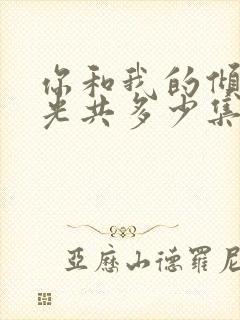 你和我的倾
光共多少集
亞歷山德羅尼